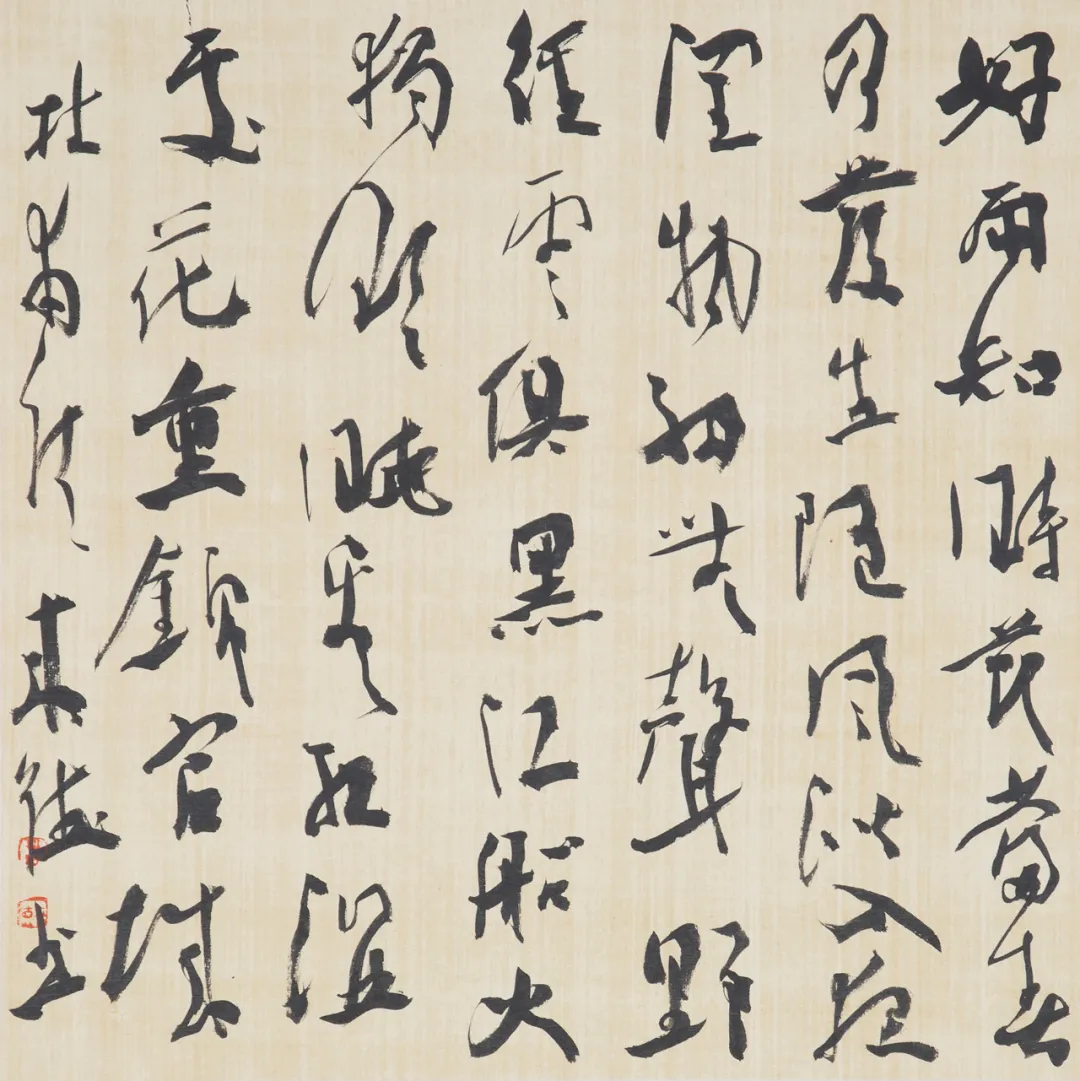 好雨知時節當春
乃發生隨風潛入夜
潤物細無聲野
徑雲俱黑江船火
獨明曉看紅濕
處花重錦官城
杜甫詩 書